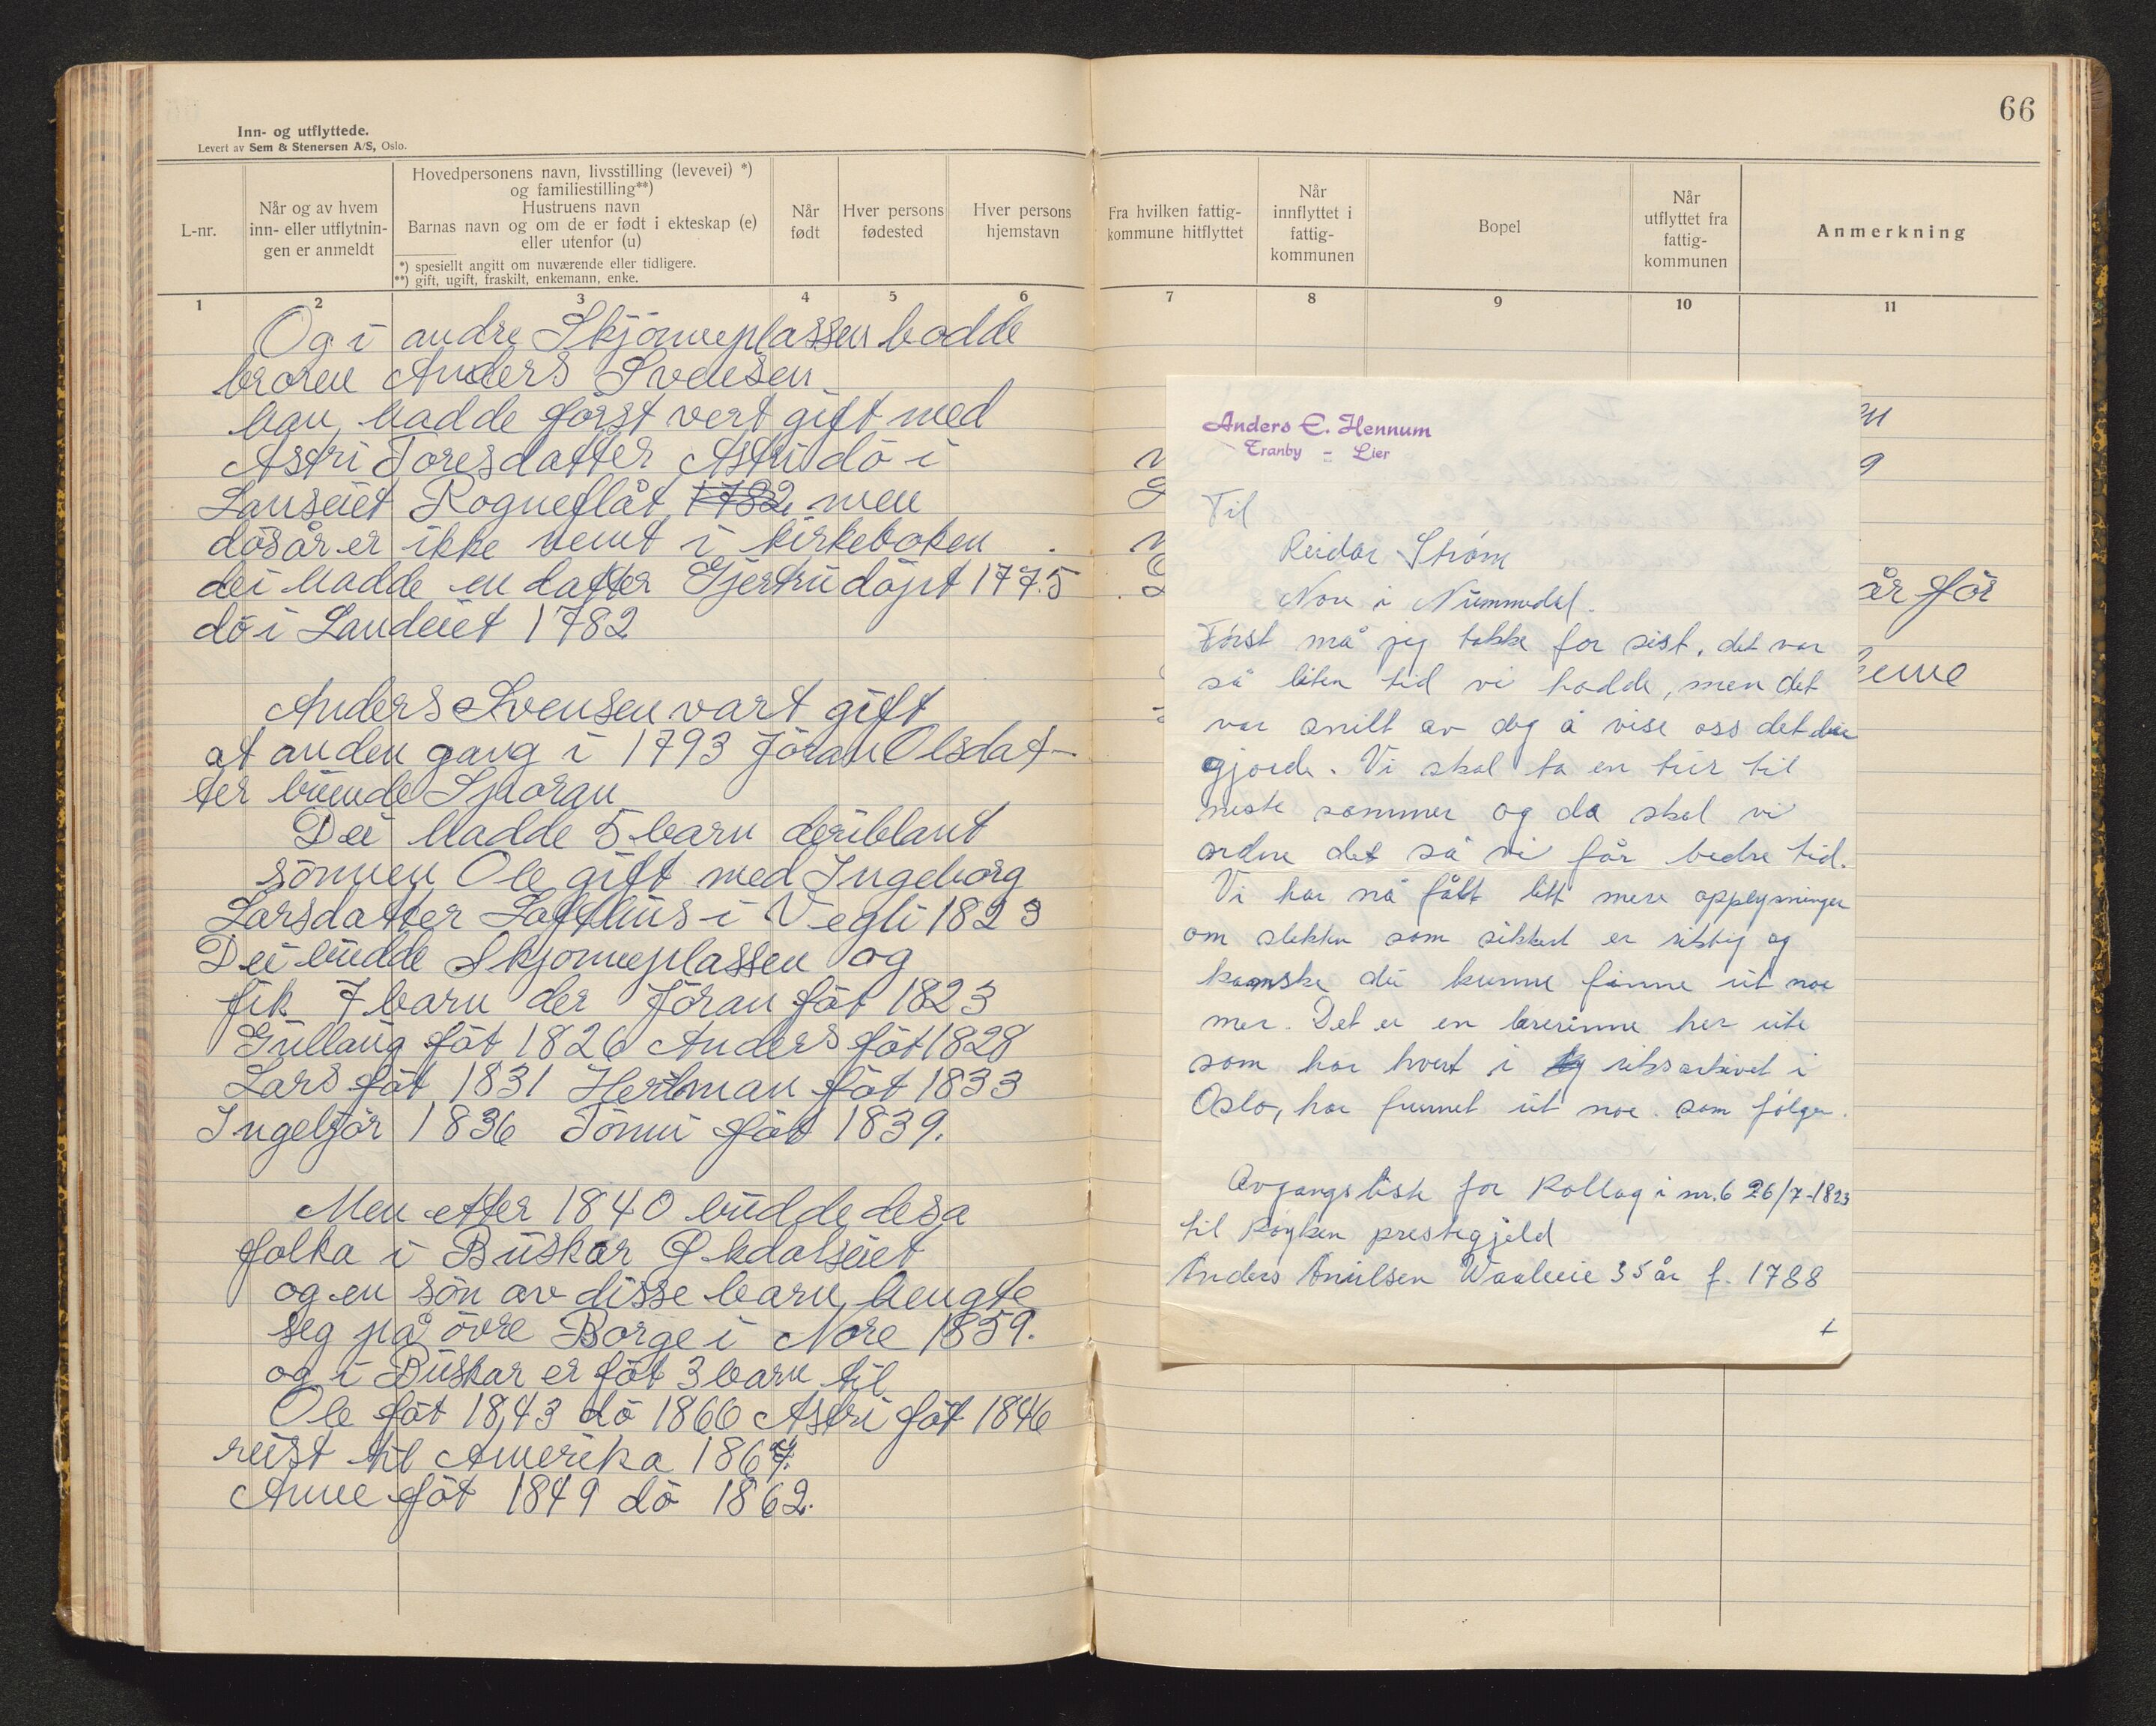 Inn- og utflyttede.
Levert av Sem & Stenersen A/S, Oslo.
L-nr.
Når og av hvem
inn- eller utflytnin-
gen er anmeldt
Hovedpersonens navn, livsstilling (levevei) *)
og familiestilling**)
Hustruens navn
Barnas navn og om de er født i ekteskap (e)
eller utenfor (u)
*) spesiellt angitt om nuværende eller tidligere.
**) gift, ugift, fraskilt, enkemann, enke.
Når
født
Hver persons
fødested
Hver persons
hjemstavn
1 2 3 4 5 6
Og i andre Skjönneplassen bodde
broren Anders Svensen
han hadde först vert gift med
Astri Toresdatter Astri dö i
Lanseiet Rogneflåt 1782 men
dösår er ikke nemt i kirkeboken
dei hadde en datter Gjertru döpt 1775
dö i Landeiet 1782
Anders Svensen vart gift
at anden gang i 1793 Jöran Olsdat-
ter buende
Dei hadde 5 barn deriblant
sönnen Ole gift med Ingeborg
Larsdatter Lofthus i Vegli 1823
Dei budde Skjonneplassen og
fik 7 barn der Jöran föt 1823
Gullaug föt 1826 Anders föt 1828
Lars föt 1831 Herbman föt 1833
Ingebjör 1836 Tönni föt 1839.
Men etter 1840 budde desa
folka i Buskar Økdalseiet
og en sön av disse barn bengte
seg på övre Borge i Nore 1859.
og i Buskar er föt 3 barn til
Ole föt 1843 dö 1866 Astri föt 1846
reist til Amerika 1867.
Anne föt 1849 dö 1862.
66
Fra hvilken fattig-
kommune hitflyttet
Når
innflyttet i
fattig-
kommunen
Bopel
Når
utflyttet fra
fattig-
kommunen
Anmerkning
7 8 9 10 11
år för
Anders E. Hennum
Tranby - Lier
Til
Reidar Strøm
Nore i Nummedal.
Først må jeg takke for sist, det var
så liten tid vi hadde, men det
var snilt av deg å vise oss det du
gjorde. Vi skal ta en tur til
neste sommer og da skal vi
ordne det så vi får bedre tid.
Vi har nå fått litt mere opplysninger
om slekten som sikkert er riktig og
kanske du kunne finne ut noe
mer. Det er en lærerinne her ute
som har hvert i riksarkivet i
Oslo, har funnet ut noe som følger.
Avgangsliste for Rollag i nr. 6 26/7-1823
til Røyken prestegjeld
Anders Amilsen Waaleeie 35 år f. 1788